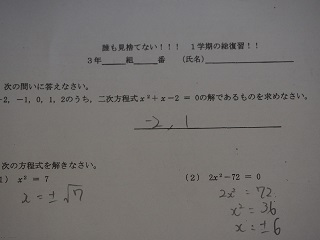 誰も見捨てない！！！ 1学期の総復習！！
3年＿＿＿組＿＿＿番 (氏名)＿＿＿＿＿＿
次の問いに答えなさい。
-2, -1, 0, 1, 2のうち, 二次方程式 x²+x-2 = 0の解であるものを求めなさい。
-2, 1
次の方程式を解きなさい。
1) x² = 7
x = ±√7
(2) 2x²-72 = 0
2x² = 72
x² = 36
x = ±6